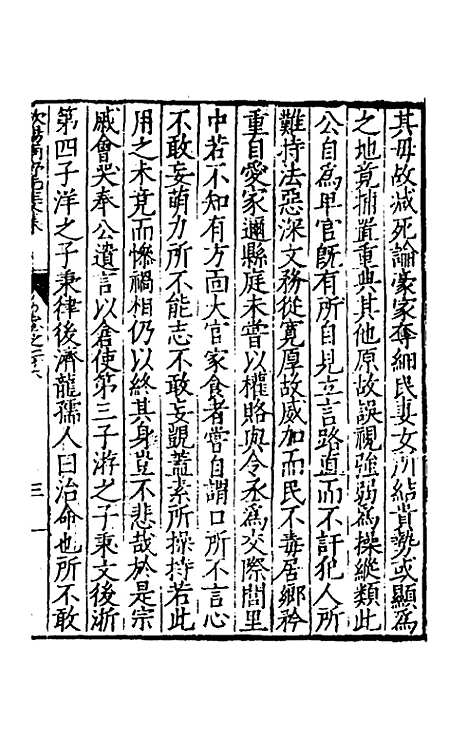 其毋故減死論豪家奪細民妻女所結貴勢或顯爲
之地竟捕置重典其他原故誤視強弱爲操縱類此
公自爲卑官既有所自見立言路直而不訐犯人所
難持法惡深文務從寬厚故威加而民不毒居鄉矜
重自愛家邇縣庭未嘗以權賂與令丞爲交際閭里
中若不知有方面大官家食者嘗自謂口所不言心
不敢妄萌力所不能志不敢妄覬蓋素所操持若此
用之未竟而慘禍相仍以終其身豈不悲哉於是宗
戚會哭奉公遺言以倉使第三子游之子秉文後浙
第四子洋之子秉律後濟龍孺人曰治命也所不敢
三